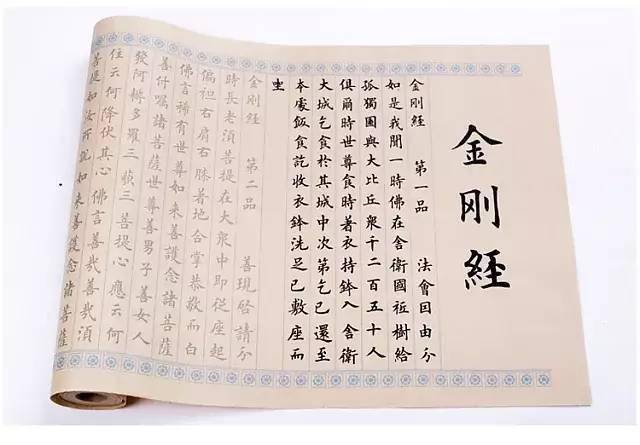 金剛經
金剛經 第一品 法會囙由分
如是我聞一時佛在舍衛國祇樹給
孤獨園與大比丘衆千二百五十人
俱爾時世尊食時著衣持鉢入舍衛
大城乞食於其城中次第乞已還至
本處飯食訖收衣鉢洗足已敷座而
坐
金剛經 第二品 善現啟請分
時長老須菩提在大衆中即從座起
偏袒右肩右膝著地合掌恭敬而白
佛言稀有世尊如來善護念諸菩薩
善付囑諸菩薩世尊善男子善女人
發阿耨多羅三藐三菩提心應云何
住云何降伏其心佛言善哉善哉須
菩提如汝所說如來善護念諸菩薩